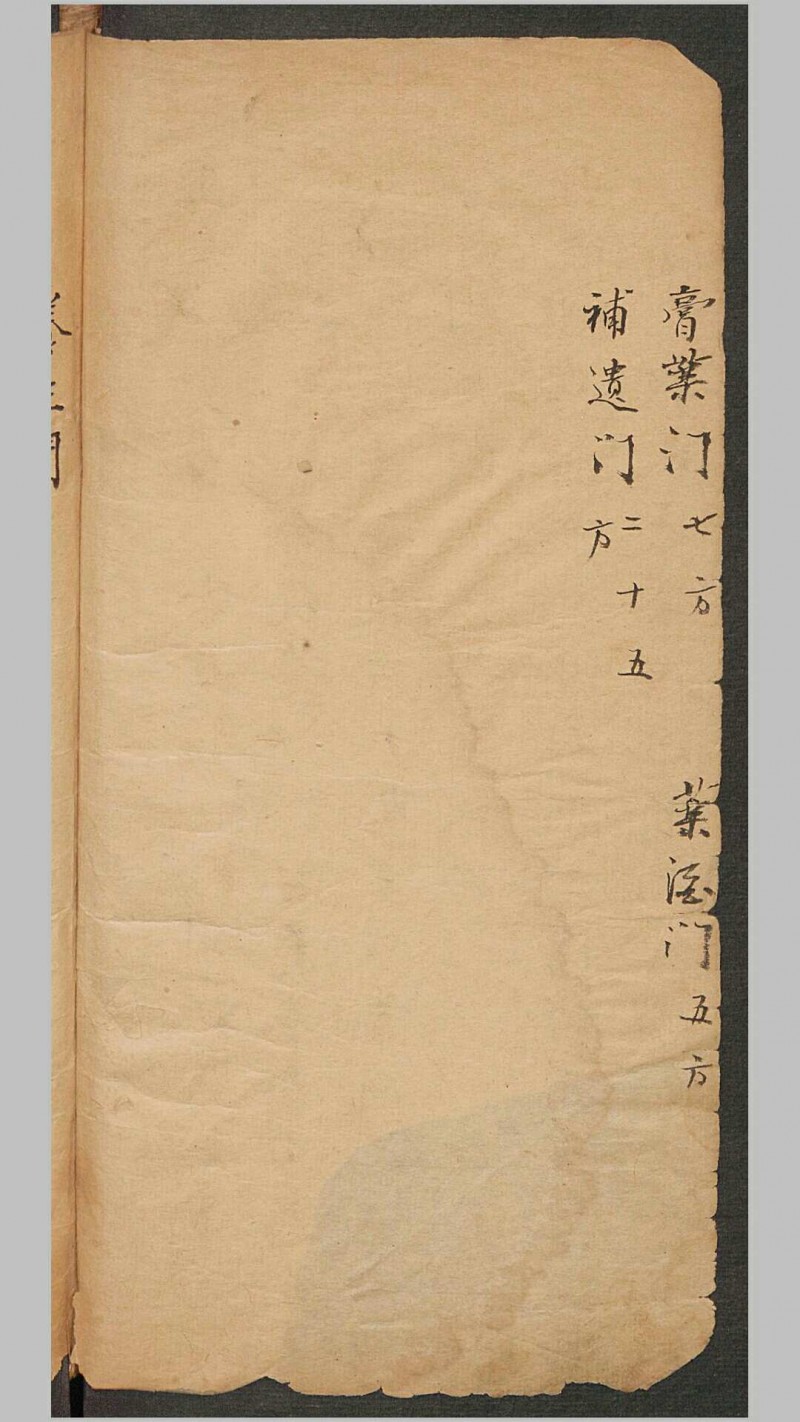 膏藥门 七方 藥酒门 五方
補遺门 二十五方